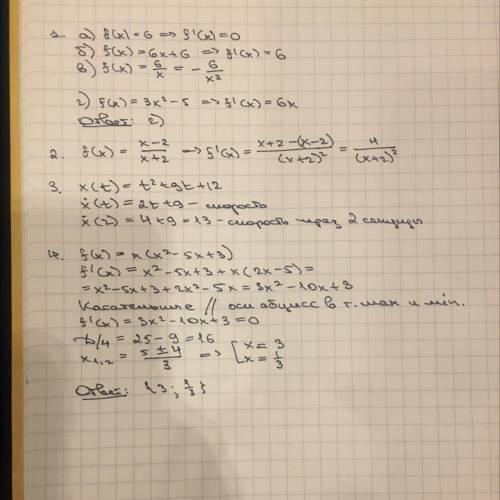 1. а) f(x) = 6 => f'(x) = 0
б) f(x) = 6x+6 => f'(x) = 6
в) f(x) = 6/x = - 6/x²
г) f(x) = 3x² - 5 => f'(x) = 6x
Ответ: г)
2. f(x) = (x-2)/(x+2) => f'(x) = (x+2-(x-2))/(x+2)² = 4/(x+2)²
3. x(t) = t²+9t+12
ẋ(t) = 2t+9 - скорость
ẋ(2) = 4+9 = 13 - скорость через 2 секунды
4. f(x) = x(x²-5x+3)
f'(x) = x²-5x+3+x(2x-5) =
= x²-5x+3+2x²-5x = 3x²-10x+3
Касательные // оси абцисс в т. max и min.
f'(x) = 3x²-10x+3 = 0
D/4 = 25-9 = 16
x1,2 = (5±4)/3 => [ x = 3
x = 1/3
Ответ: {3; 1/3}